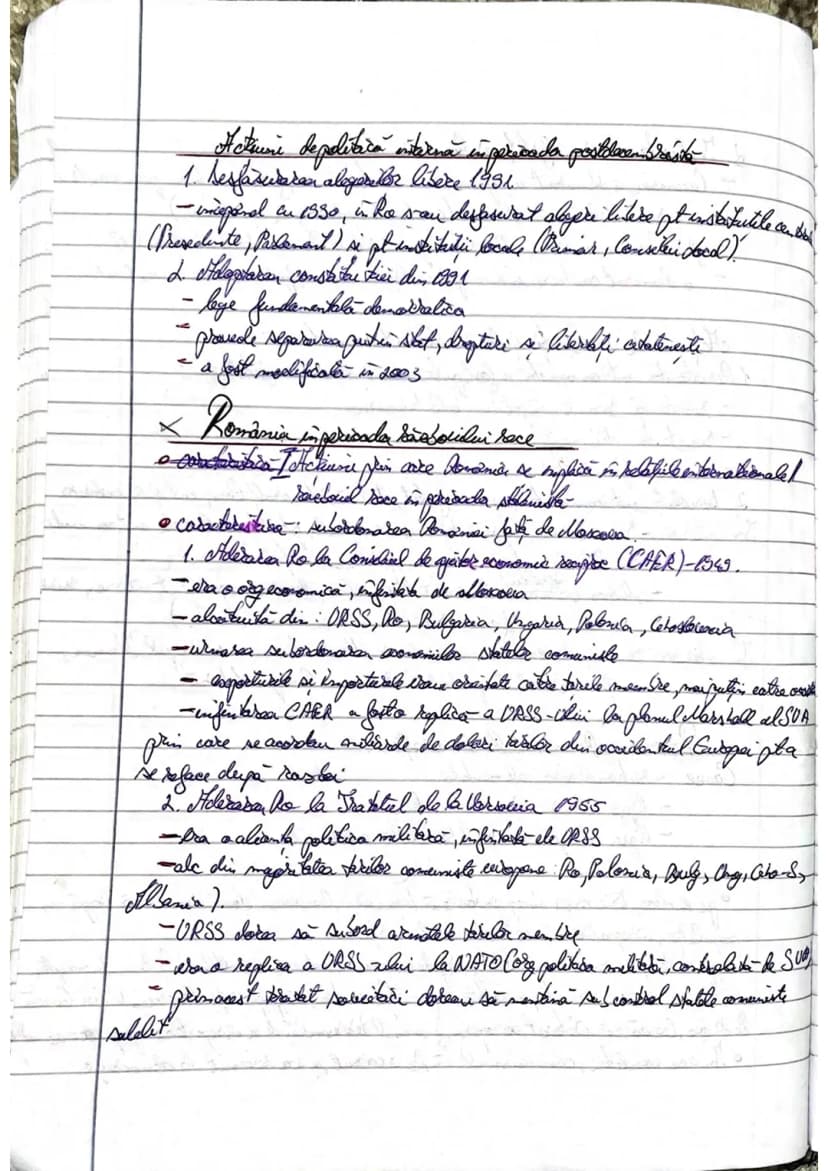 Acțiuni de politică internă în perioada postdecembristă
1. Desfășurarea alegerilor libere 1991
- începând cu 1990, în Ro s-au desfășurat alegeri libere pt instituțiile centrale
(Președinte, Parlament) și pt instituții locale (Primar, Consiliu local).
2. Adoptarea constituției din 1991
- lege fundamentală democratica
- prevede separarea puterii stat, drepturi și libertăți cetatenești
- a fost modificată în 2003
× România în perioada războiului rece
I Actiuni prin care România se implică în relațiile internationale/
războiul rece în perioada stalinistă
• caracteristica: subordonarea României față de Moscova.
1. Aderarea Ro la Consiliul de ajutor economic reciproc (CAER)-1949.
- era o org economică, înfintata de Moscova
- alcătuită din: URSS, Ro, Bulgaria, Ungaria, Polonia, Cehoslovacia
- urmarea subordonarea economiilor statelor comuniste
- exporturile si importurile erau orientate către tarile membre, mai puțin catre
- înfintarea CAER a fost o replică a URSS-ului la planul Marshall al SUA
prin care se acordau miliarde de dolari tarilor din occidentul Europei pt a
se reface după razboi
2. Aderarea Ro la Tratatul de la Varsovia 1955
- Era o alianta politica militară, înfintată de URSS
- alc din majoritatea tarilor comuniste europene: Ro, Polonia, Bulg, Ung, Ceho-S,
Albania).
- URSS dorea să subord armatele tarilor membre
- era o replica a URSS-ului la NATO (org politica militară, controlată de SUA)
- prin acest tratat sovieticii doreau să mentină sub control statele comuniste
satelit